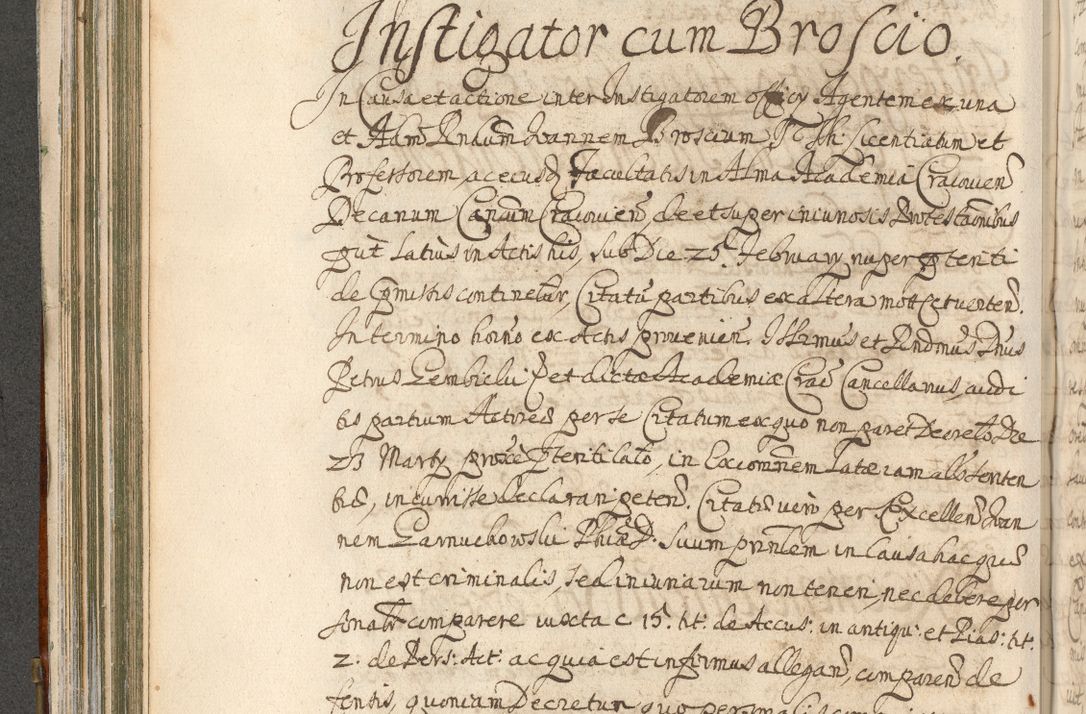 Instigator cum Broscio.
In Causa et actione inter Instigatorem officy Agentem ex una
et Adm Rndum Joannem Broscium S Th: Licentiatum et
Professorem, ac eiusd Facultatis in Alma Academia Cracovien
Decanum Canum Cracovien, de et super iniuriosis Protestaonibus
put latius in Actis his, sub Die 25 February nuper pteriti
de pmissis continetur, Citatu partibus ex altera mott et verten.
In termino horno ex Actis provenien. Illrmus et Rndmus Dnus
Petrus Gembicki et dictae Academiae Crac Cancellarius, audi
tis partium Actorea per se Citatum ex quo non paret Decreto Die
23 Marty proxe pteriti lato, in Excomnem latae iam als senten
tiae, incurrisse declarari peten. Citatus vero per Excellen Joan
nem Garnuchowski Phiae D. suum prinlem in Causa hac quae
non est criminalis, sed iniuriarum non teneri, nec debere per
sonalr comparere iuxta c 15. tit: de Accus: in antiqu: et Pias: tit.
2. de Pers: Act: ac quia est infirmus allegan, comparen de
fentis, quoniam Decretum quo personalis com